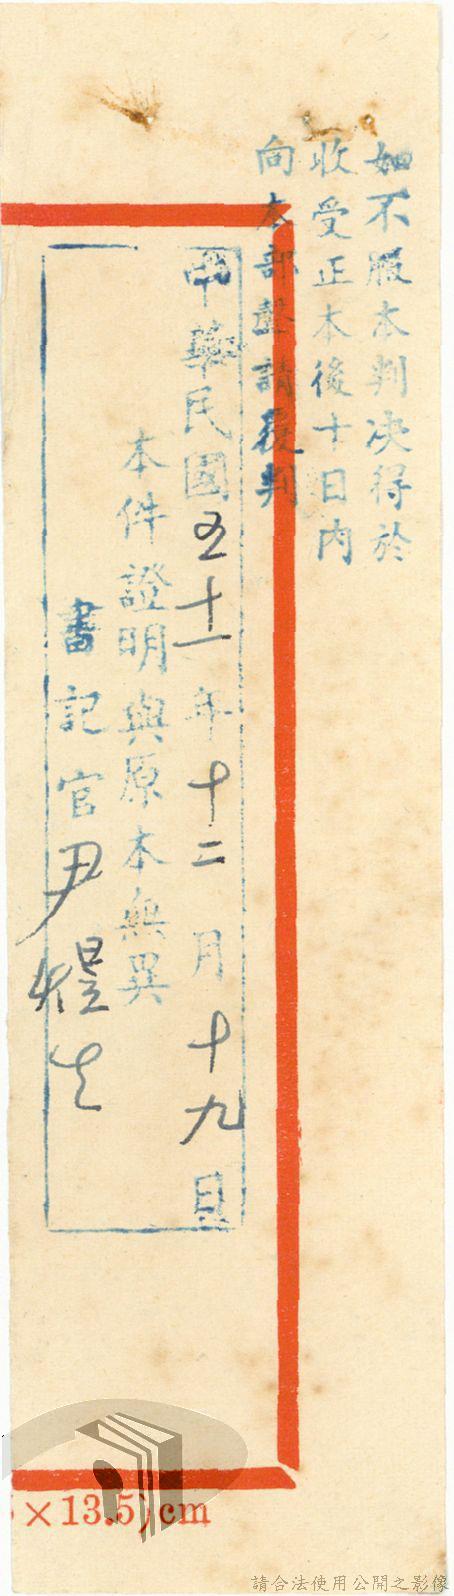 如不服本判决得於
收受正本後十日内
向本部聲請覆判
中華民國五十一年十二月十九日
本件證明與原本無異
書記官尹
×13.5)cm
請合法使用公開之影像